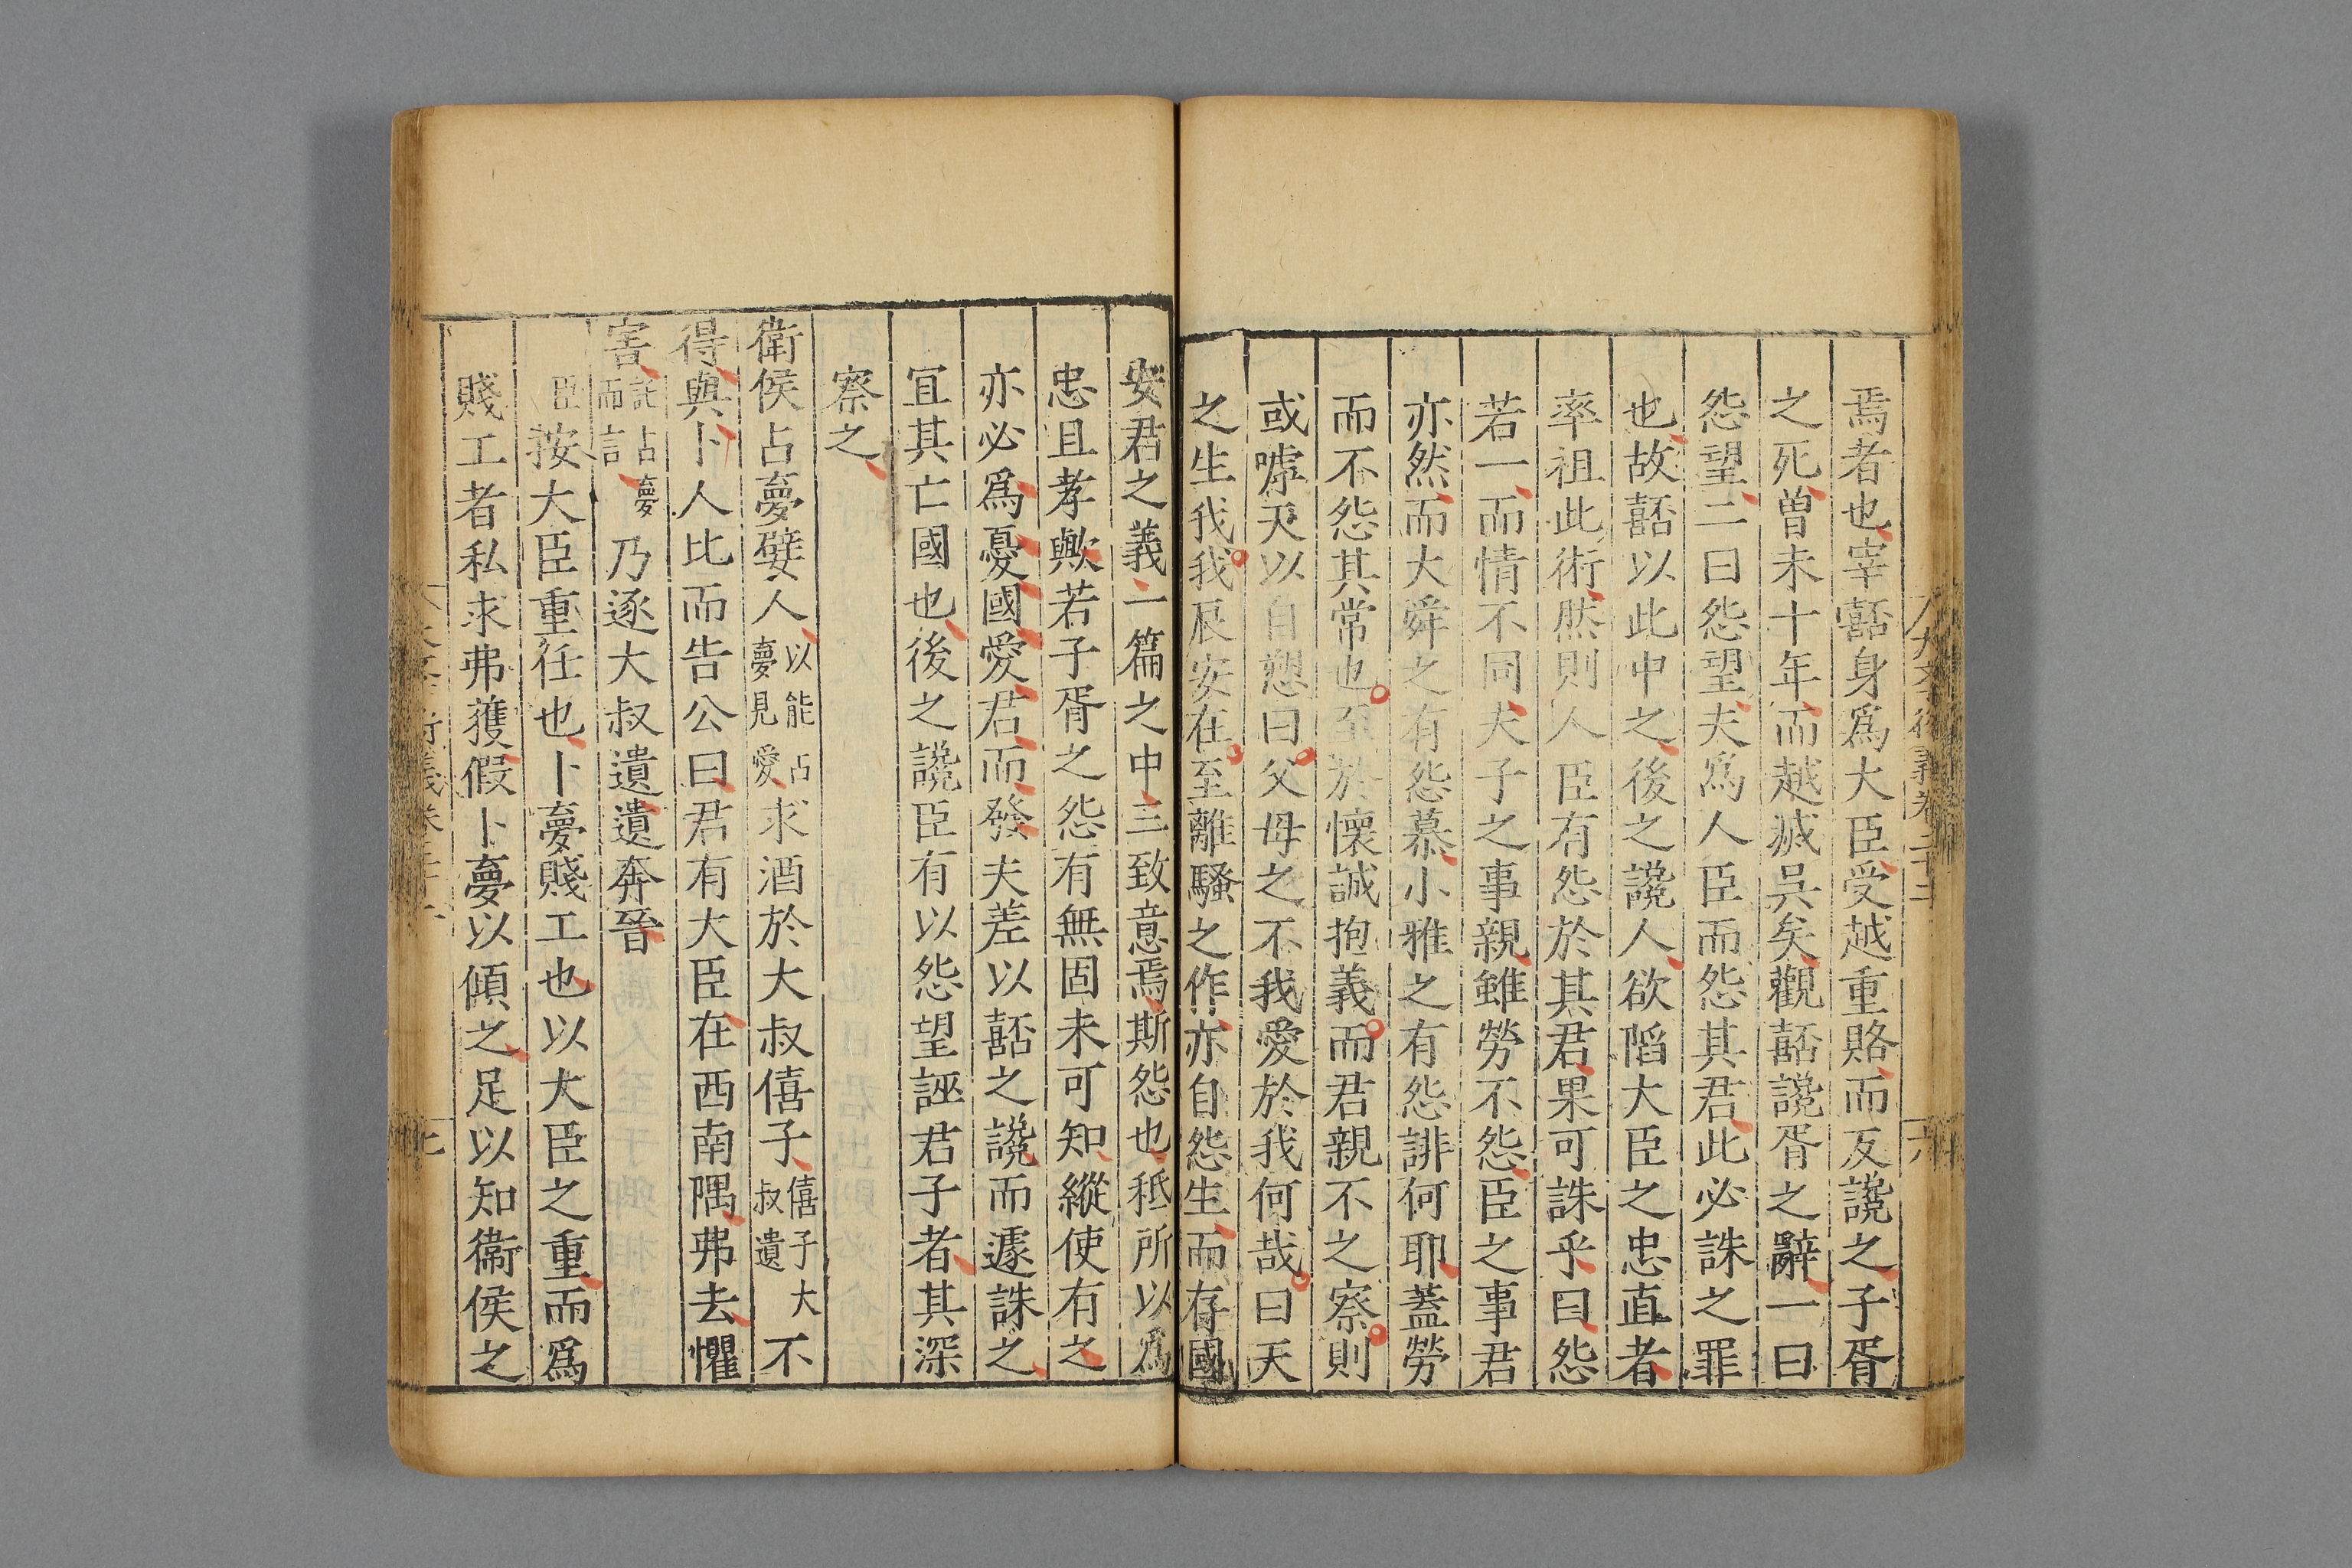 大學衍義卷二十二
六
焉者也宰嚭身爲大臣受越重賂而反讒之子胥
之死曽未十年而越㓕呉矣觀嚭讒胥之辭一曰
怨望二曰怨望夫爲人臣而怨其君此必誅之罪
也故嚭以此中之後之讒人欲䧟大臣之忠直者
率祖此術然則人臣有怨於其君果可誅乎曰怨
若一而情不同夫子之事親雖勞不怨臣之事君
亦然而大舜之有怨慕小雅之有怨誹何耶蓋勞
而不怨其常也至於懷誠抱義而君親不之察則
或嘑天以自愬曰父母之不我愛於我何哉曰天
之生我我辰安在至離騷之作亦自怨生而存國
安君之義一篇之中三致意焉斯怨也秖所以爲
忠且孝歟若子胥之怨有無固未可知縱使有之
亦必爲憂國愛君而發夫差以嚭之讒而遽誅之
宜其亡國也後之讒臣有以怨望誣君子者其深
察之
衛侯占夢嬖人以能占夢見愛求酒於大叔僖子僖子大叔遺不
得與卜人比而告公曰君有大臣在西南隅弗去懼
害託占夢而言乃逐大叔遺遺奔晉
臣按大臣重任也卜夢賤工也以大臣之重而爲
賤工者私求弗獲假卜夢以傾之足以知衛侯之
七